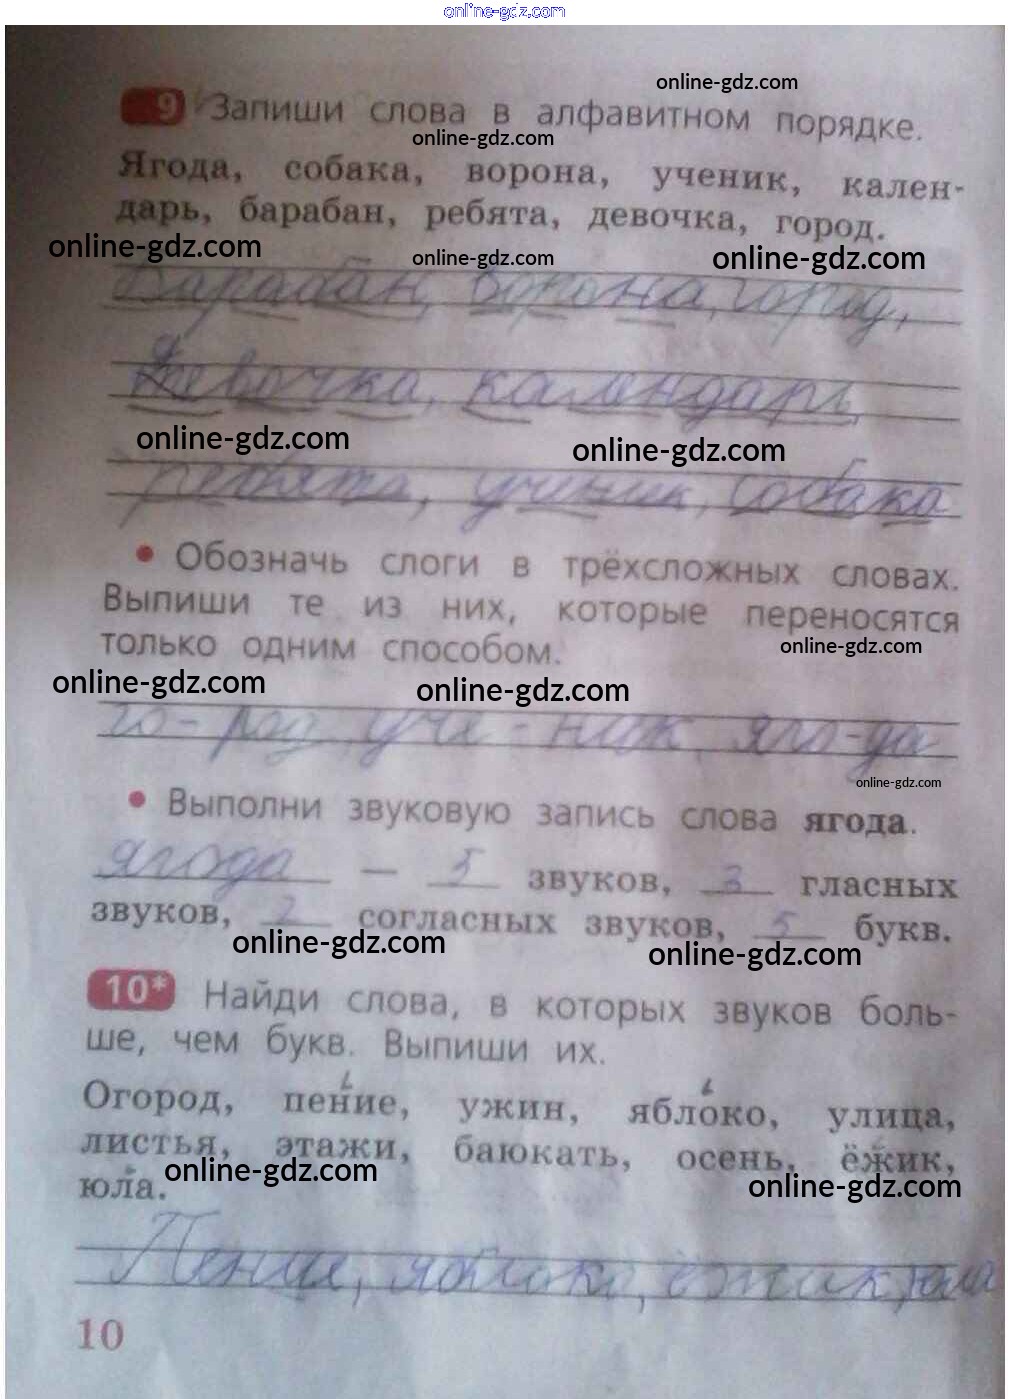 online-gdz.com
online-gdz.com
9 Запиши слова в алфавитном порядке.
online-gdz.com
Ягода, собака, ворона, ученик, кален-
дарь, барабан, ребята, девочка, город.
online-gdz.com online-gdz.com online-gdz.com
Барабан, ворона, город,
Девочка, календарь,
online-gdz.com online-gdz.com
ребята, ученик, собака
• Обозначь слоги в трёхсложных словах.
Выпиши те из них, которые переносятся
только одним способом.
online-gdz.com
online-gdz.com online-gdz.com
го-род, уче-ник, яго-да
online-gdz.com
• Выполни звуковую запись слова ягода.
ягода — 5 звуков, 3 гласных
звуков, 2 согласных звуков, 5 букв.
online-gdz.com online-gdz.com
10* Найди слова, в которых звуков боль-
ше, чем букв. Выпиши их.
Огород, пение, ужин, яблоко, улица,
листья, этажи, баюкать, осень, ёжик,
online-gdz.com online-gdz.com
юла.
Пение, яблоко, ёжик, юла
10